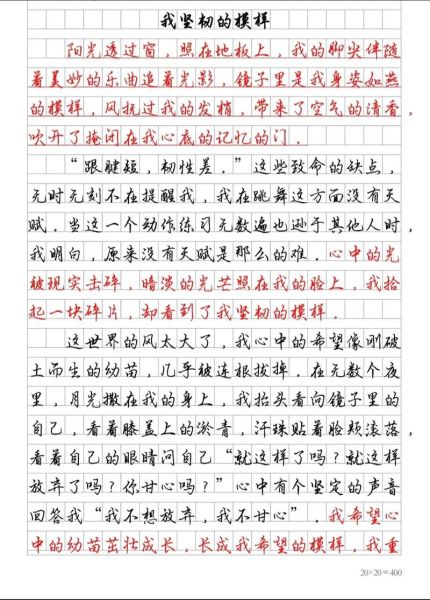 我坚韧的模样
阳光透过窗，照在地板上，我的脚尖伴随
着美妙的乐曲追着光影，镜子里是我身姿如燕
的模样，风抚过我的发梢，带来了空气的清香，
吹开了掩闭在我心底的记忆的门.
“跟腱短，韧性差.”这些致命的缺点，
无时无刻不在提醒我，我在跳舞这方面没有天
赋.当这一个动作练习无数遍也逊于其他人时，
我明白，原来没有天赋是那么的难.心中的光
被现实击碎，暗淡的光芒照在我的脸上，我拾
起一块碎片，却看到了我坚韧的模样.
这世界的风太大了，我心中的希望像刚破
土而生的幼苗，几乎被连根拔掉.在无数个夜
里，月光撒在我的身上，我抬头看向镜子里的
自己，看着膝盖上的淤青，汗珠贴着脸颊滚落，
看着自己的眼睛问自己“就这样了吗？就这样
放弃了吗？你甘心吗？”心中有个坚定的声音
回答我“我不想放弃，我不甘心”.我希望心
中的幼苗茁壮成长，长成我希望的模样，我重
20×20=400